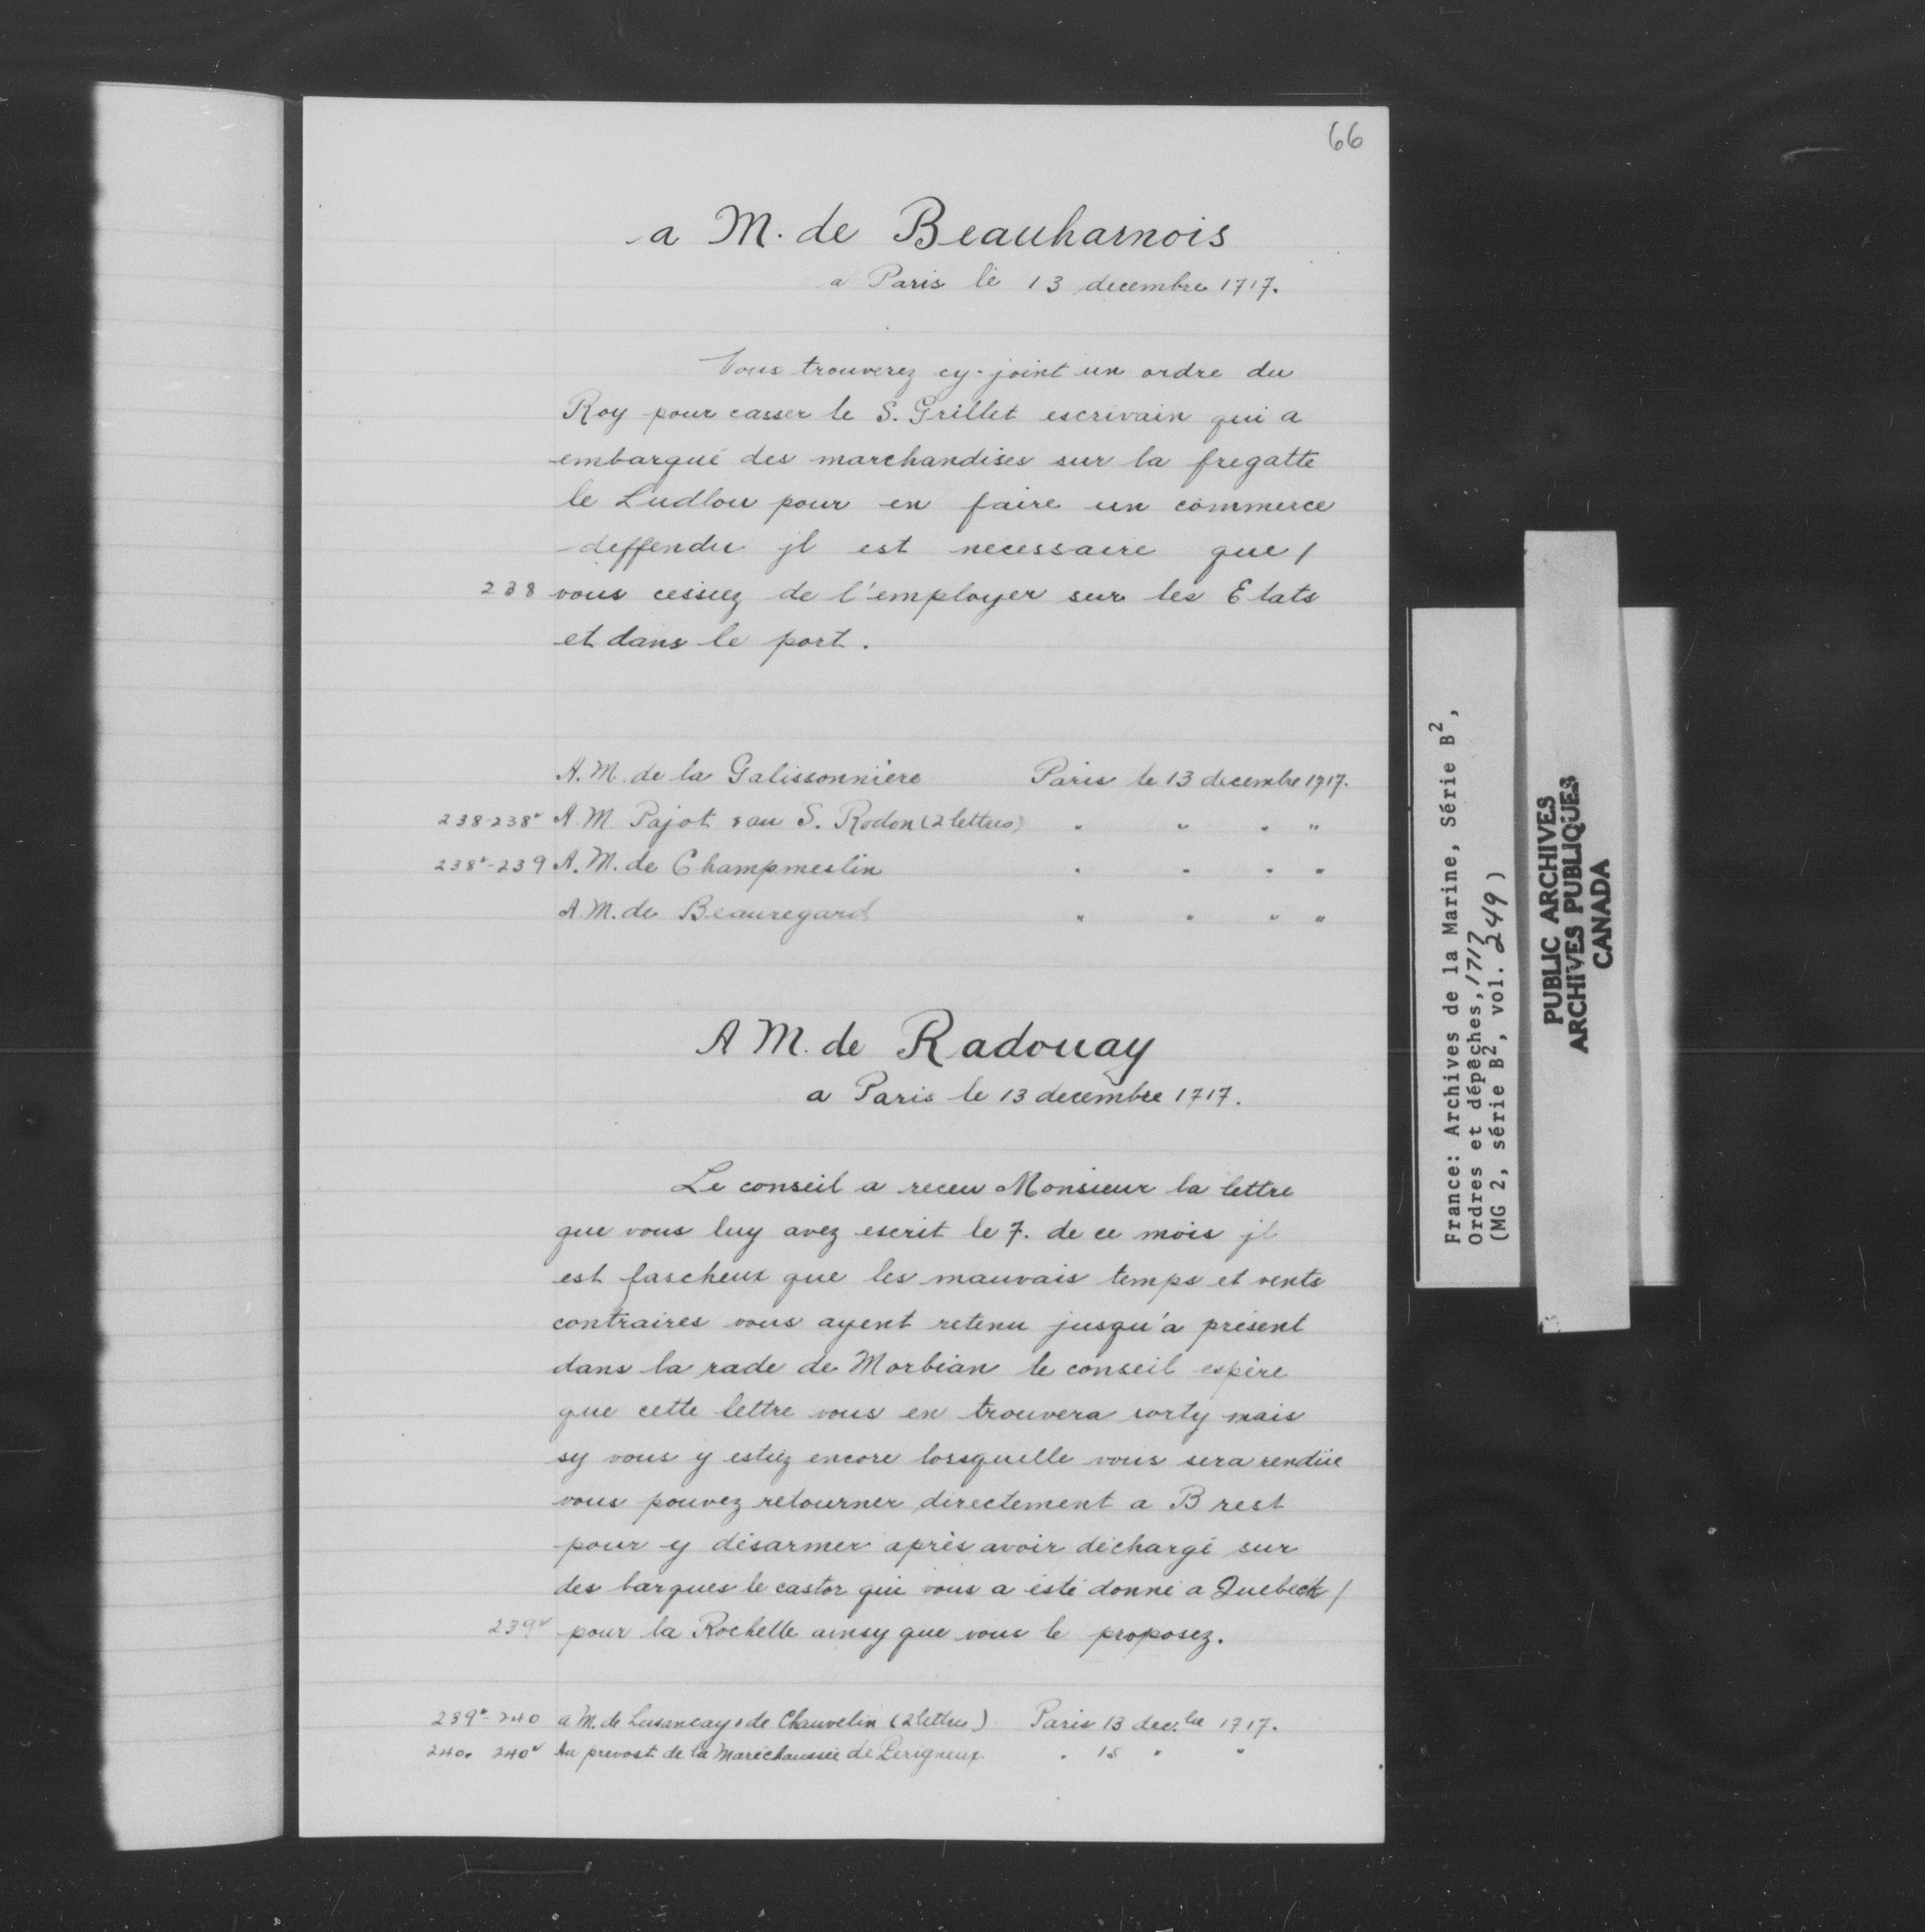 66
a M. de Beauharnois
a Paris le 13 decembre 1717.
Vous trouverez cy-joint un ordre du
Roy pour casser le S. Grillet escrivain qui a
embarqué des marchandises sur la fregatte
le Ludlou pour en faire un commerce
deffendu jl est necessaire que /
238 vous cessiez de l'employer sur les Etats
et dans le port.
A. M. de la Galissonniere Paris le 13 decembre 1717.
238-238v A M Pajot & au S. Rodon (2 lettres) " " " "
238v-239 A. M. de Champmeslin " " " "
A. M. de Beauregard " " " "
A M. de Radouay
a Paris le 13 decembre 1717.
Le conseil a receu Monsieur la lettre
que vous luy avez escrit le 7. de ce mois jl
est fascheux que les mauvais temps et vents
contraires vous ayent retenu jusqu'à présent
dans la rade de Morbian le conseil espère
que cette lettre vous en trouvera sorty mais
sy vous y estiez encore lorsquelle vous sera rendüe
vous pouvez retourner directement a Brest
pour y désarmer après avoir déchargé sur
des barques le castor qui vous a esté donné a Quebeck /
239v pour la Rochelle ainsy que vous le proposez.
239v-240 a M. de Lusancay & de Chauvelin (2 lettres) Paris 13 dec.bre 1717.
240. 240v Au prevost de la Maréchaussée de Perigueux " 15 " "
France: Archives de la Marine, Série B2,
Ordres et dépêches, 1717
(MG 2, série B2, vol. 249)
PUBLIC ARCHIVES
ARCHIVES PUBLIQUES
CANADA